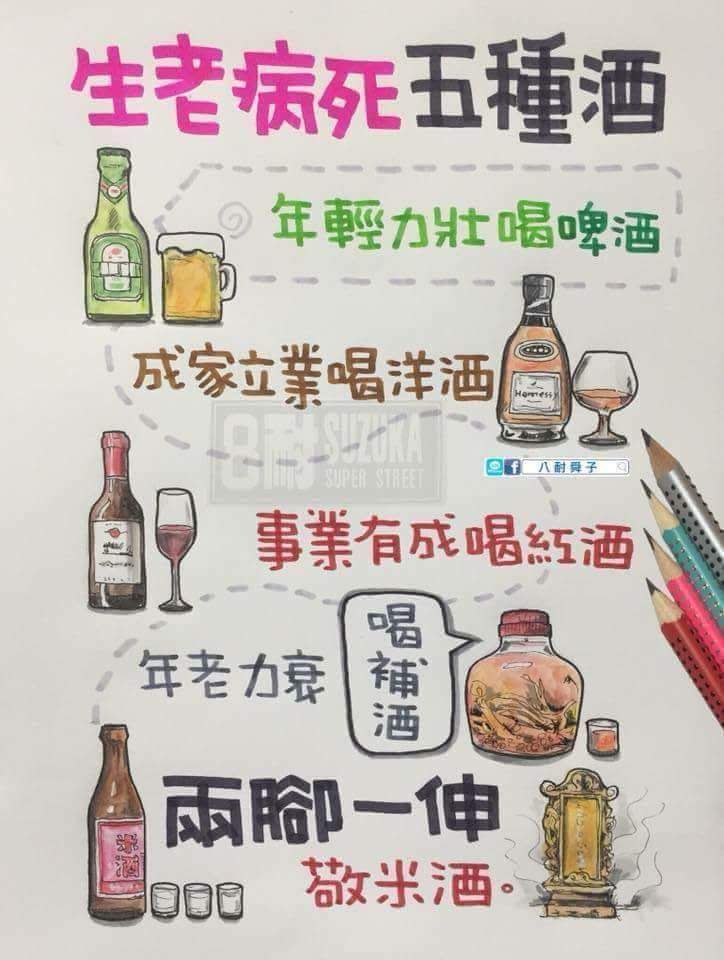 生老病死五種酒
年輕力壯喝啤酒
成家立業喝洋酒
Hennessy
8耐 SUZUKA
SUPER STREET
八耐舜子
事業有成喝紅酒
年老力衰
喝補酒
兩腳一伸
敬米酒。
米酒